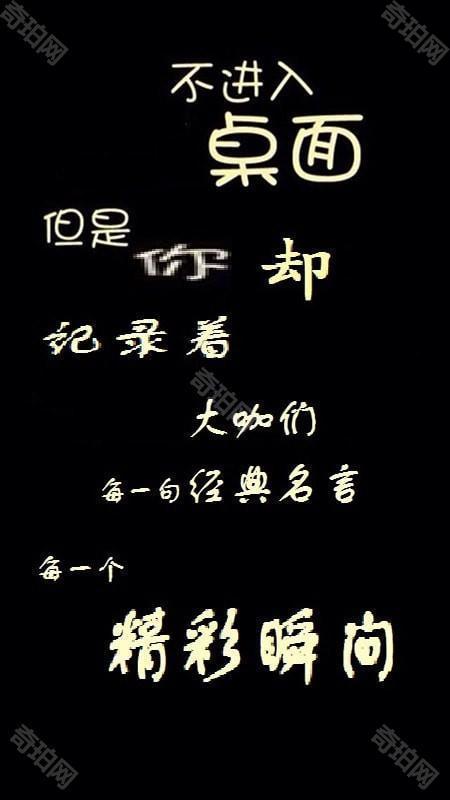 奇珀网
奇珀网
不进入
桌面
但是
你 却
记录着
奇珀网
大咖们
每一句经典名言
每一个
精彩瞬间
奇珀网
奇珀网